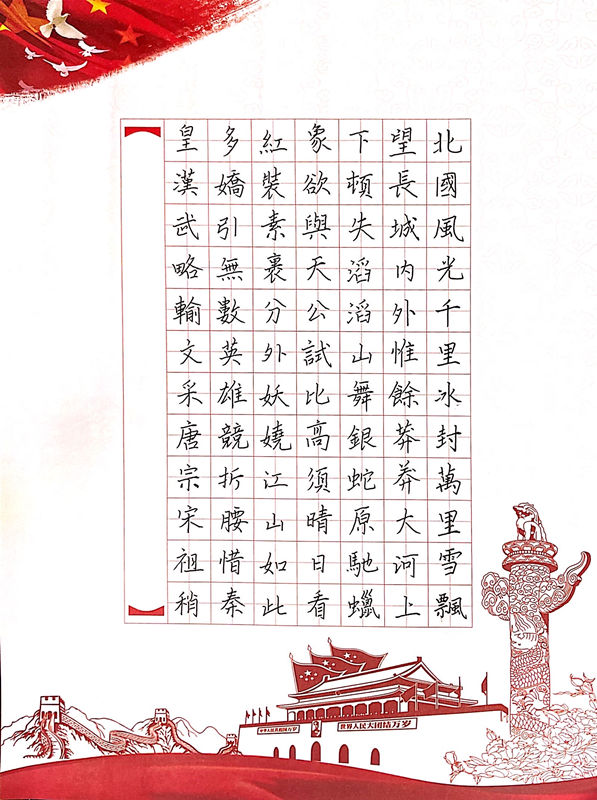 北國風光千里冰封萬里雪飄
望長城内外惟餘莽莽大河上
下頓失滔滔山舞銀蛇原馳蠟
象欲與天公試比高須晴日看
紅裝素裹分外妖嬈江山如此
多嬌引無數英雄競折腰惜秦
皇漢武略輸文采唐宗宋祖稍
中华人民共和国万岁
世界人民大团结万岁